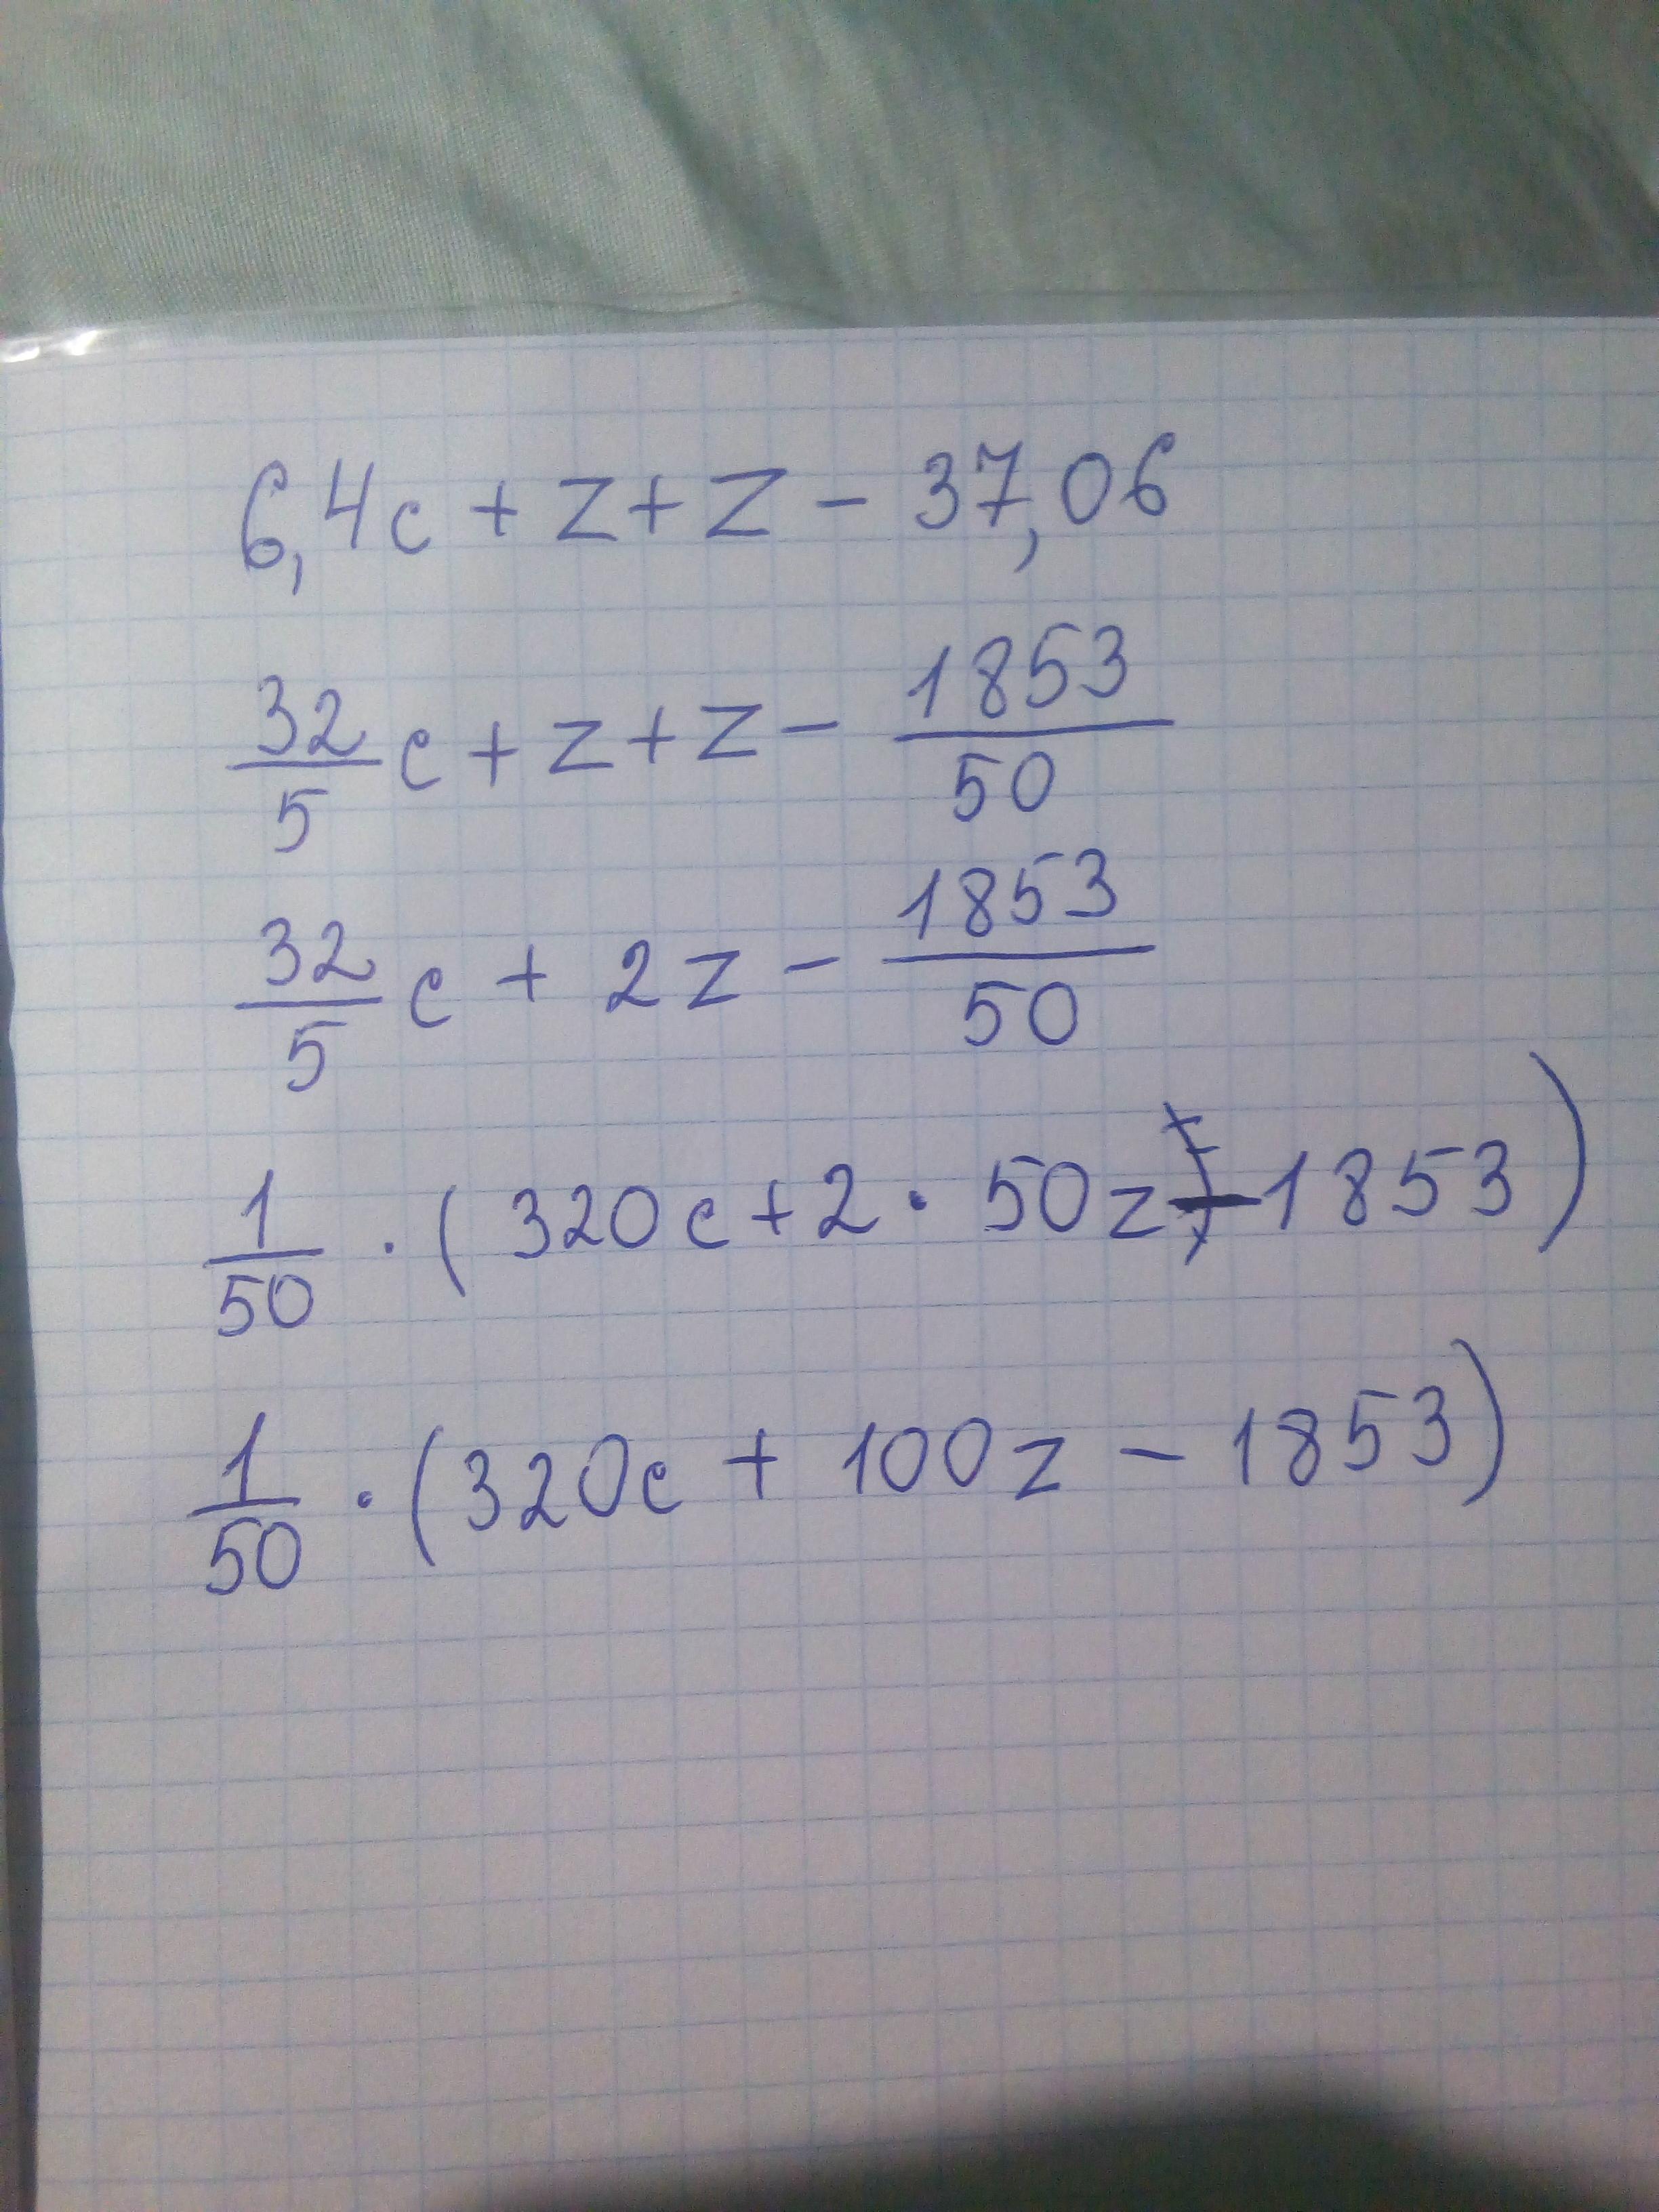 6,4c + z + z - 37,06
32/5 c + z + z - 1853/50
32/5 c + 2z - 1853/50
1/50 · (320c + 2 · 50z - 1853)
1/50 · (320c + 100z - 1853)